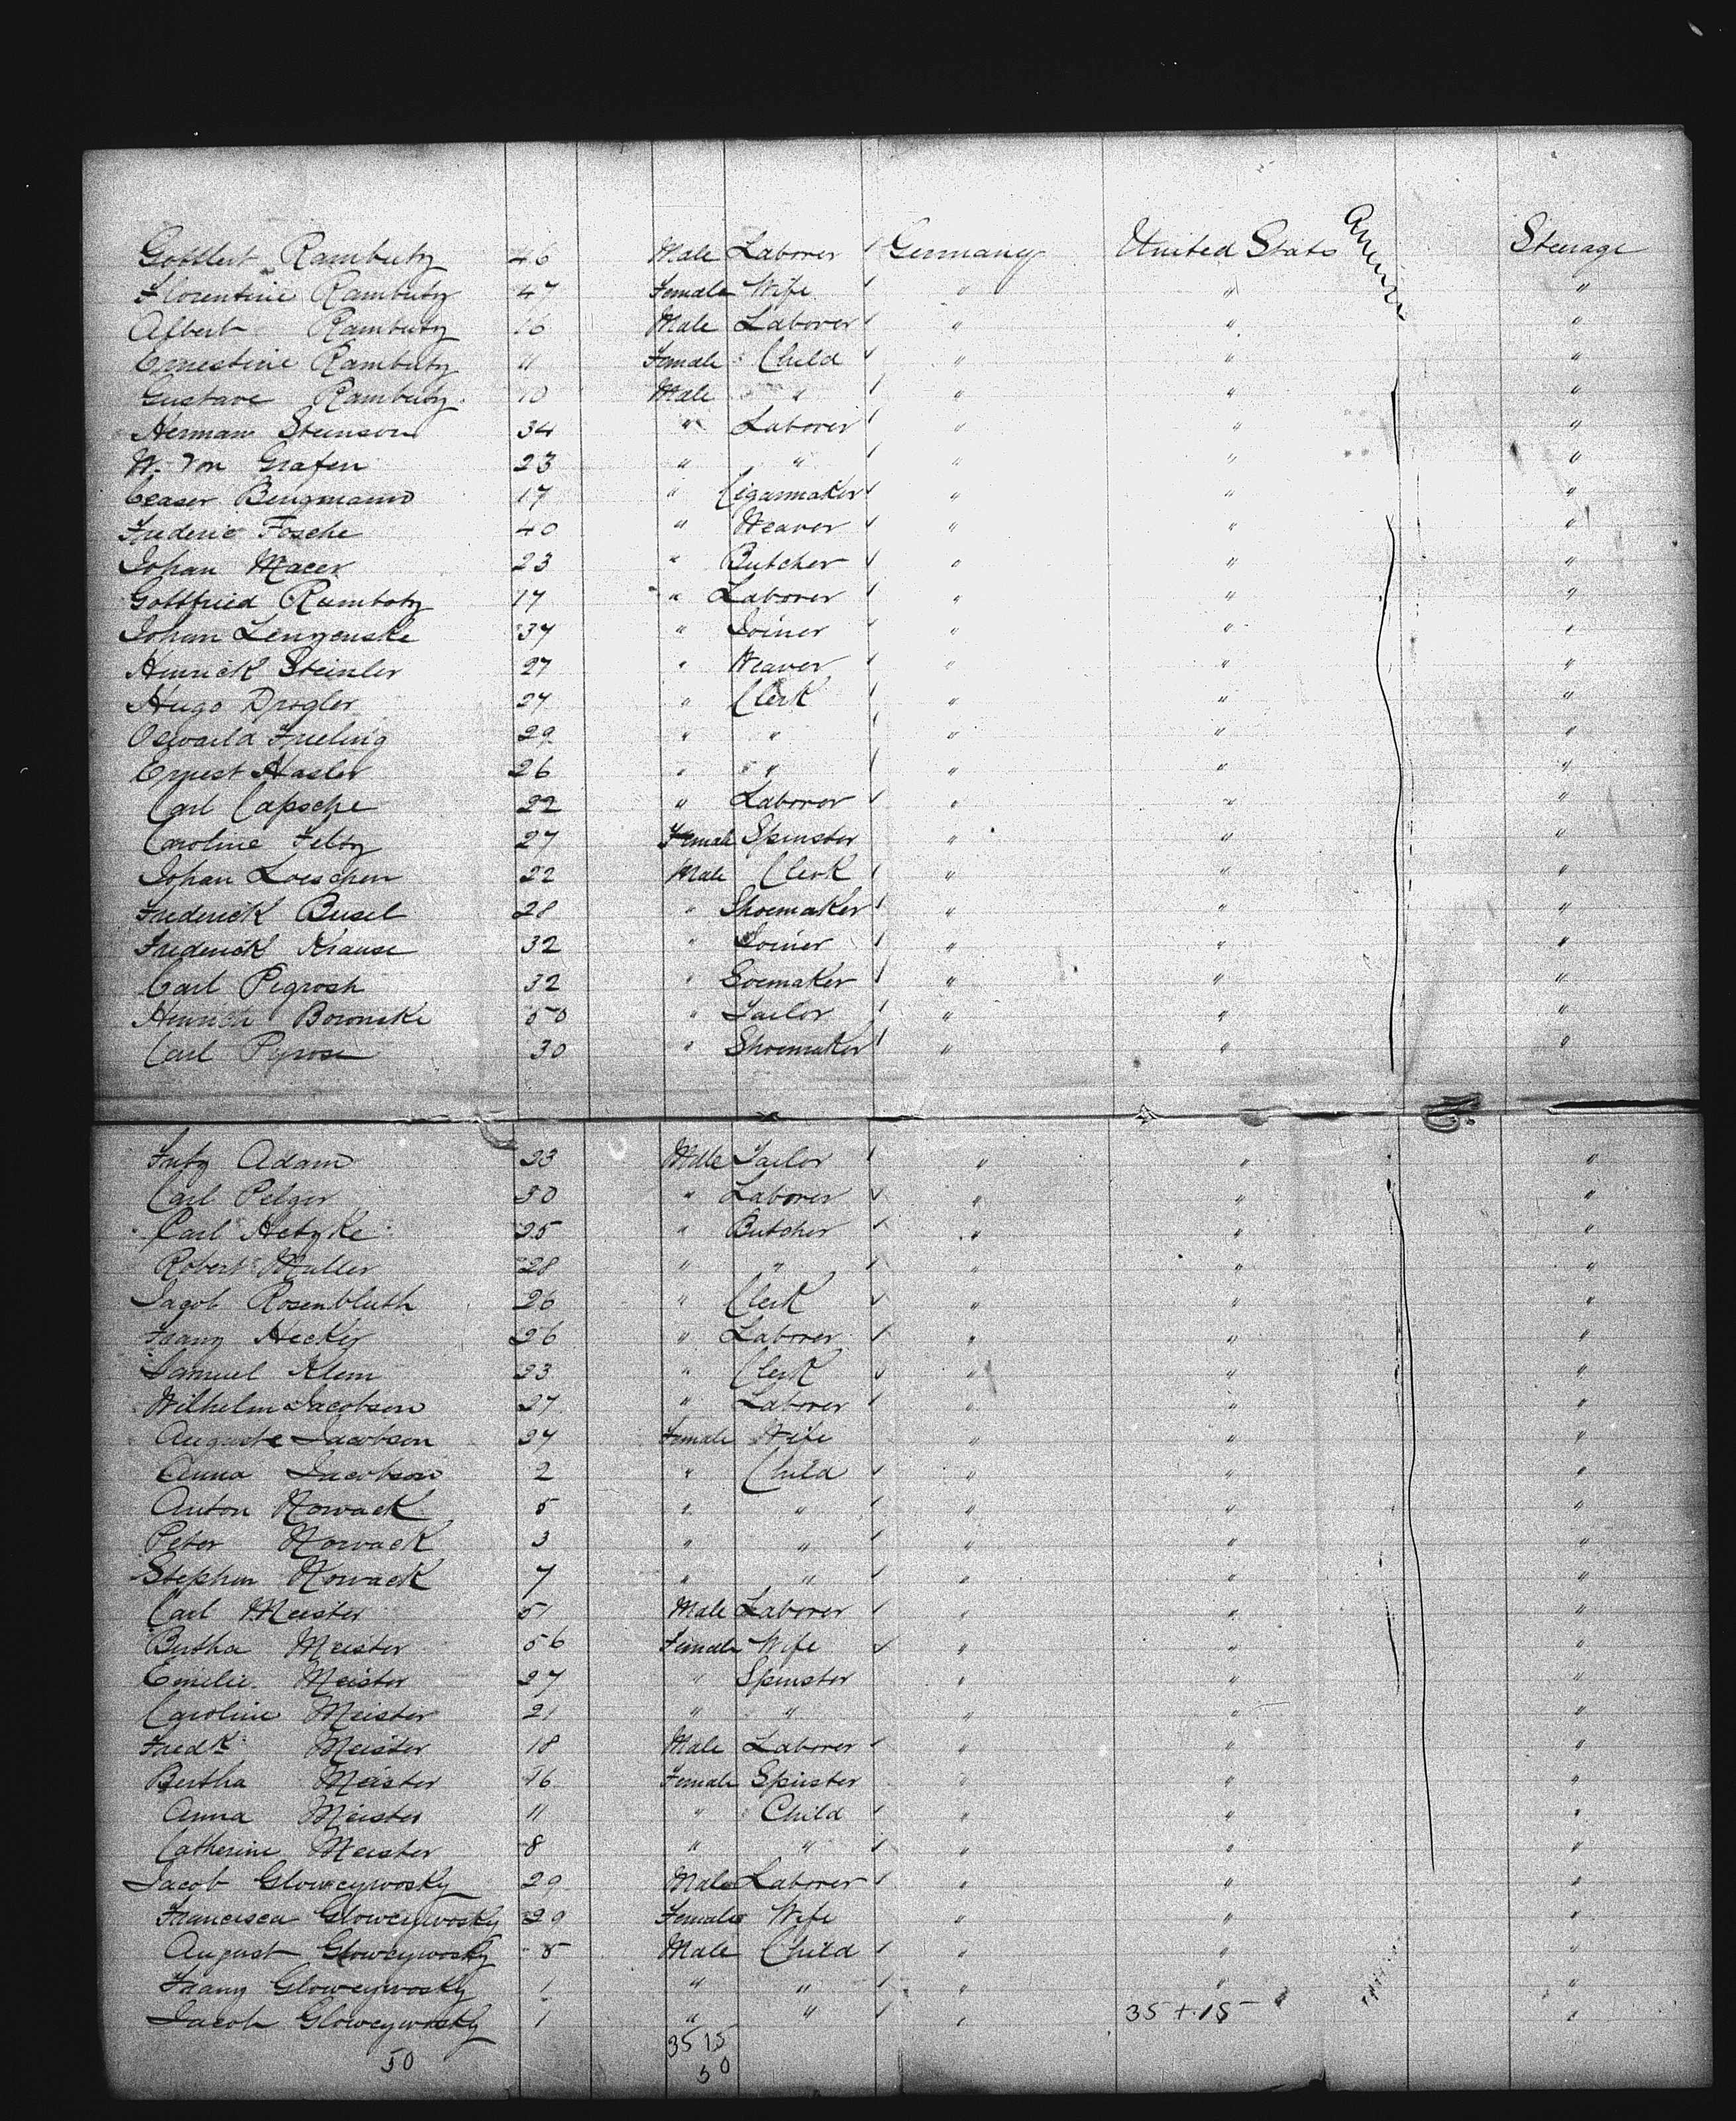 Gottlieb Rambutz 46 Male Laborer Germany United States Steerage
Florentine Rambutz 47 Female Wife " " "
Albert Rambutz 16 Male Laborer " " "
Ernestine Rambutz 11 Female Child " " "
Gustave Rambutz 10 Male " " " "
Herman Steinson 34 " Laborer " " "
W. von Grafen 23 " " " " "
Ceaser Bengmann 17 " Cigarmaker " " "
Frederic Fosche 40 " Weaver " " "
Johan Macer 23 " Butcher " " "
Gottfried Rambotz 17 " Laborer " " "
Johan Lengenske 37 " Joiner " " "
Hinrick Steinler 27 " Weaver " " "
Hugo Drogler 27 " Clerk " " "
Oswaild Frueling 29 " " " " "
Ernest Hasler 26 " " " " "
Carl Capsche 22 " Laboror " " "
Caroline Feltz 27 Female Spinster " " "
Johan Loeschen 22 Male Clerk " " "
Frederick Beisel 28 " Shoemaker " " "
Frederick Krause 32 " Joiner " " "
Carl Pigrosh 32 " Soemaker " " "
Hinrich Boronske 50 " Tailor " " "
Carl Pyrose 30 " Shoemaker " " "
Fritz Adam 23 Male Tailor " " "
Carl Pelzer 30 " Laborer " " "
Carl Hetzke 25 " Butcher " " "
Robert Muller 28 " " " " "
Jagob Rosenbluth 26 " Clerk " " "
Franz Hecker 26 " Laborer " " "
Samuel Klem 23 " Clerk " " "
Wilhelm Jacobsen 27 " Laborer " " "
Auguste Jacobson 27 Female Wife " " "
Anna Jacobson 2 " Child " " "
Anton Nowack 5 " " " " "
Peter Nowack 3 " " " " "
Stephen Nowack 7 " " " " "
Carl Meister 51 Male Laborer " " "
Bertha Meister 56 Female Wife " " "
Emilie Meister 27 " Spinster " " "
Caroline Meister 21 " " " " "
Fredk Meister 18 Male Laborer " " "
Bertha Meister 16 Female Spinster " " "
Anna Meister 11 " Child " " "
Catherine Meister 8 " " " " "
Jacob Glowcywosky 29 Male Laborer " " "
Francisca Glowcywosky 29 Female Wife " " "
August Glowcywosky 5 Male Child " " "
Franz Glowcywosky 1 " " " " "
Jacob Glowcywosky 1 " " " 35 + 15 "
50 35 15
50